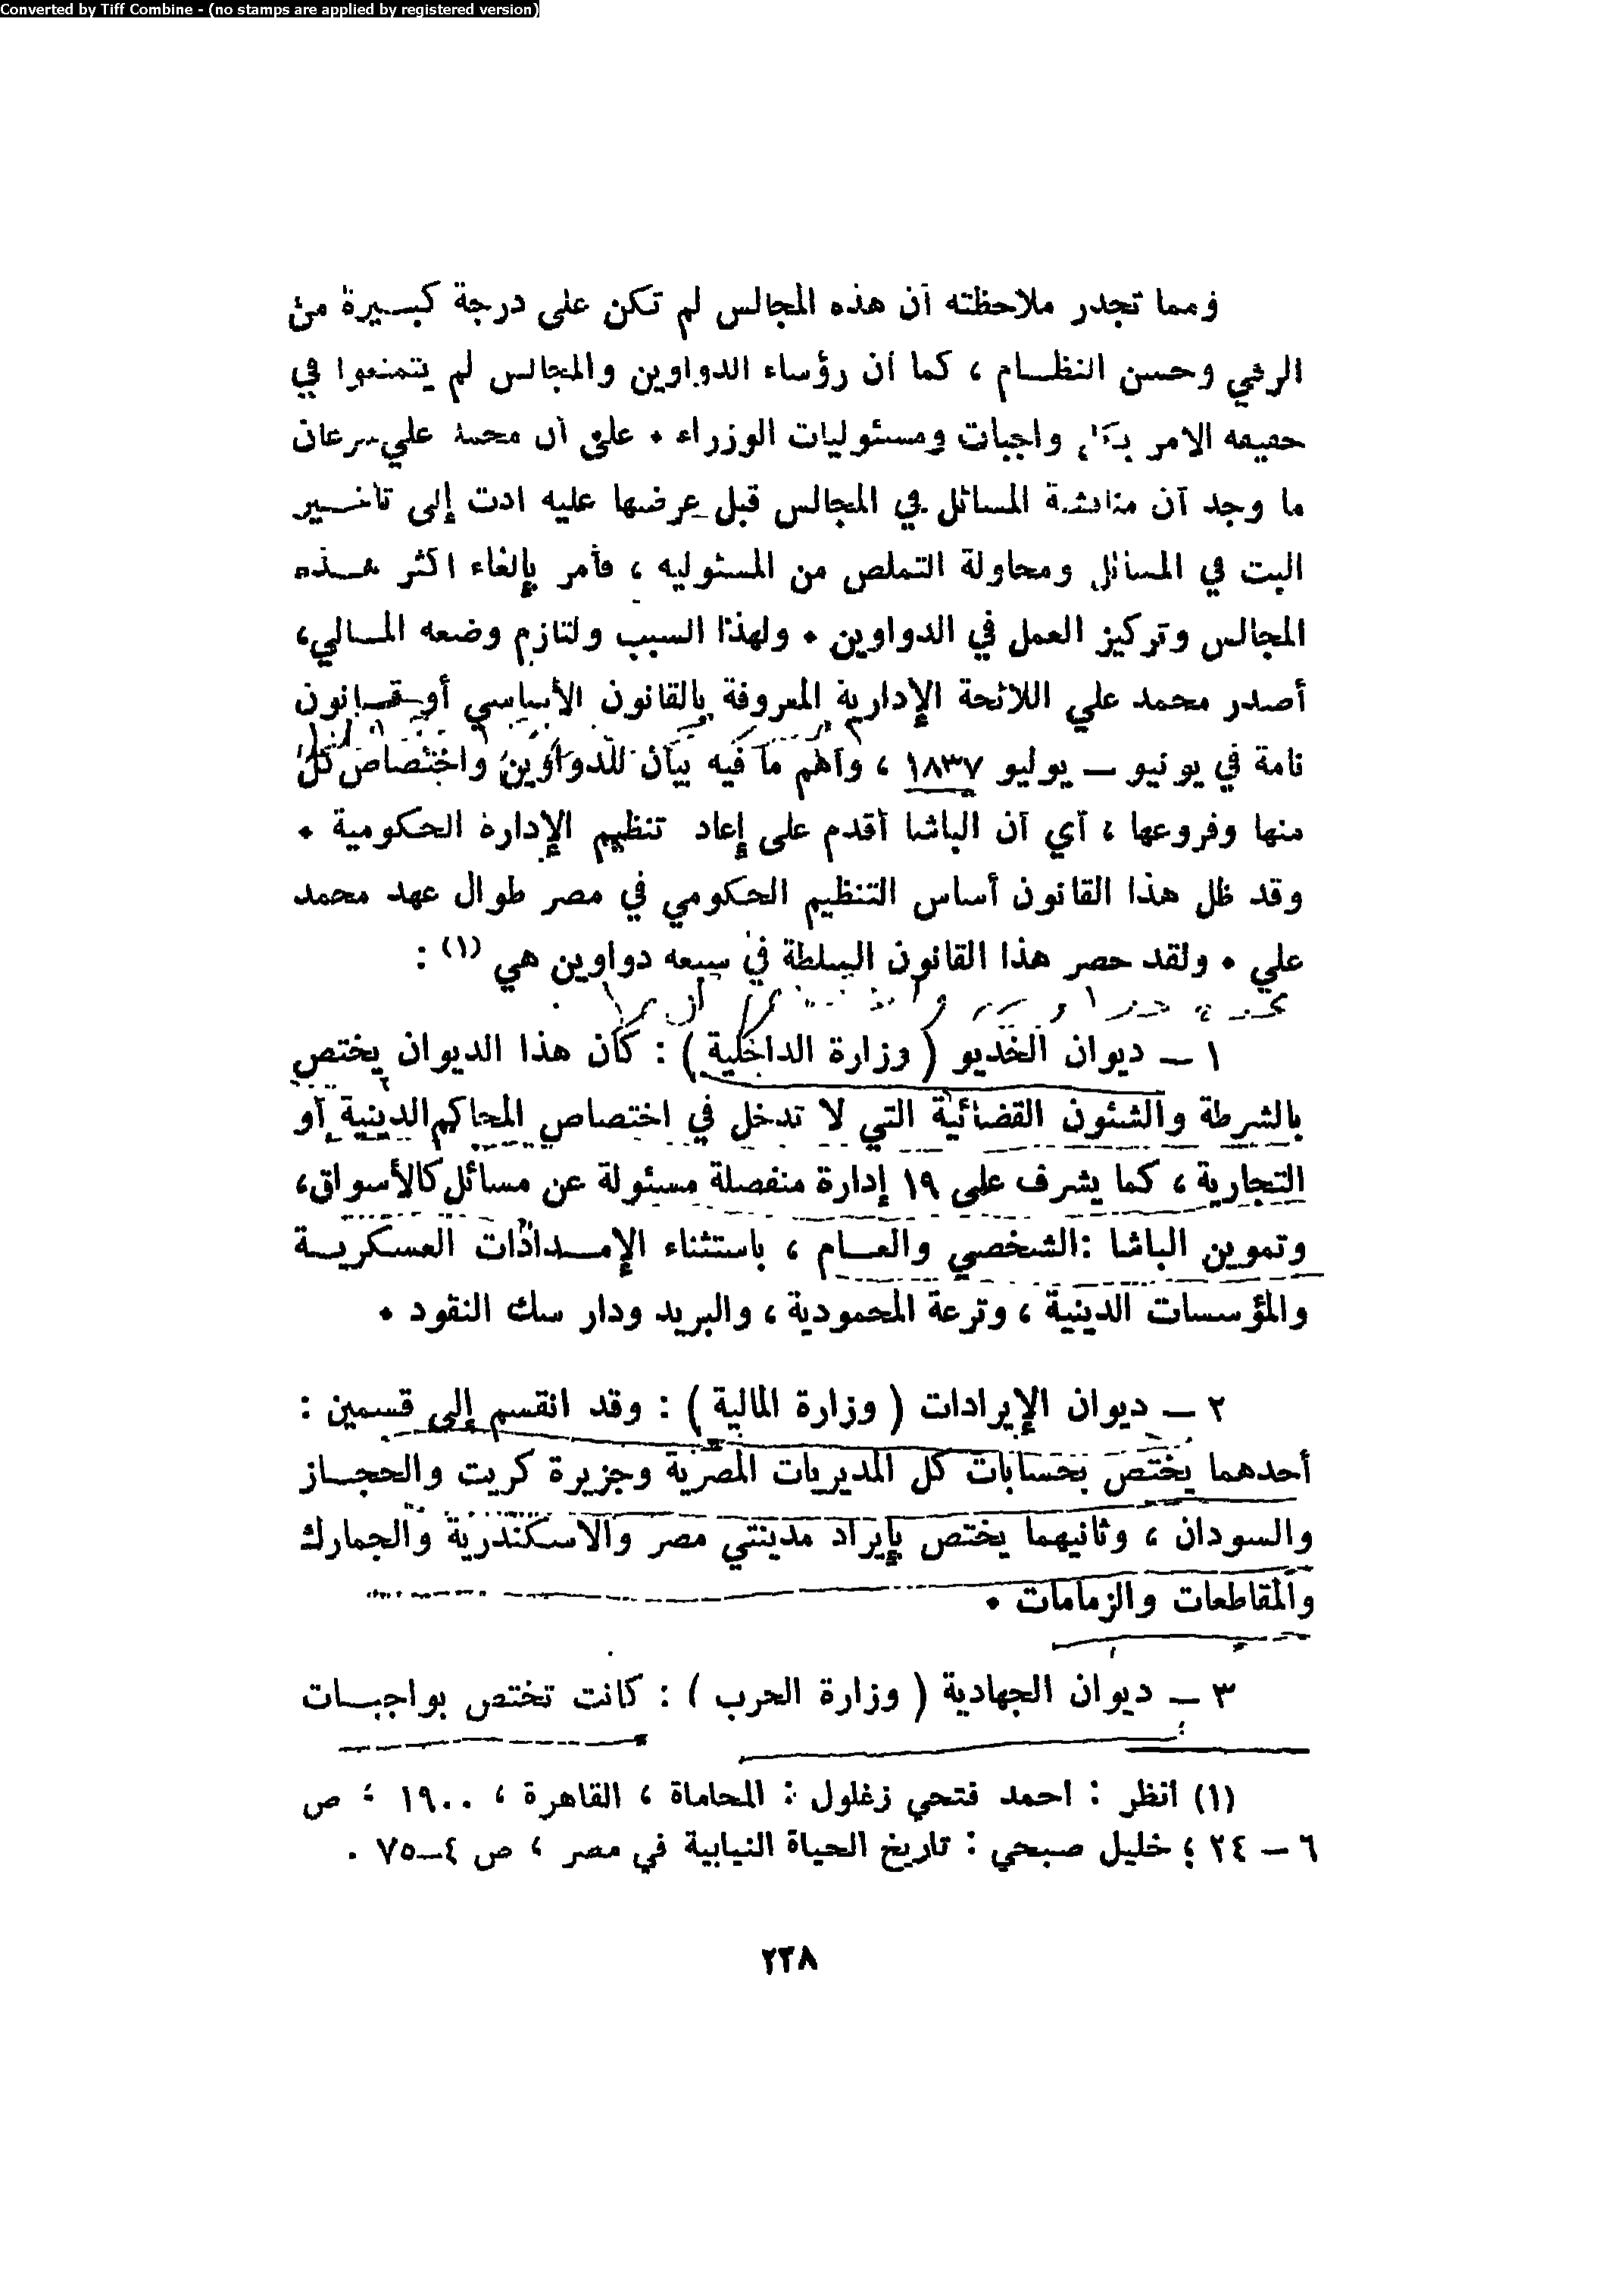 Converted by Tiff Combine - (no stamps are applied by registered version)
ومما تجدر ملاحظته أن هذه المجالس لم تكن على درجة كبيرة من
الرقي وحسن النظام ، كما أن رؤساء الدواوين والمجالس لم يتمتعوا في
حقيقة الامر واجبات ومسئوليات الوزراء . على أن محمد علي سرعان
ما وجد أن مناقشة المسائل في المجالس قبل عرضها عليه ادت إلى تأخير
البت في المسائل ومحاولة التملص من المسئولية ، فأمر بإلغاء اكثر هذه
المجالس وتركيز العمل في الدواوين . ولهذا السبب ولتازم وضعه المالي،
أصدر محمد علي اللائحة الإدارية المعروفة بالقانون الأساسي أو قانون
نامة في يونيو — يوليو ١٨٣٧ ، وأهم ما فيه بيان للدواوين واختصاص كل
منها وفروعها ، أي أن الباشا أقدم على إعاد تنظيم الإدارة الحكومية .
وقد ظل هذا القانون أساس التنظيم الحكومي في مصر طوال عهد محمد
علي . ولقد حصر هذا القانون السلطة في سبعه دواوين هي (١) :
١ — ديوان الخديو ( وزارة الداخلية ) : كان هذا الديوان يختص
بالشرطة والشئون القضائية التي لا تدخل في اختصاص المحاكم الدينية أو
التجارية ، كما يشرف على ١٩ إدارة منفصلة مسئولة عن مسائل كالأسواق،
وتموين الباشا :الشخصي والعام ، باستثناء الإمدادات العسكرية
والمؤسسات الدينية ، وترعة المحمودية ، والبريد ودار سك النقود .
٢ — ديوان الإيرادات ( وزارة المالية ) : وقد انقسم إلى قسمين :
أحدهما يختص بحسابات كل المديريات المصرية وجزيرة كريت والحجاز
والسودان ، وثانيهما يختص بإيراد مدينتي مصر والاسكندرية والجمارك
والمقاطعات والزمامات .
٣ — ديوان الجهادية ( وزارة الحرب ) : كانت تختص بواجبات
(١) أنظر : احمد فتحي زغلول : المحاماة ، القاهرة ، ١٩٠٠ ، ص
٦ — ٢٤ ؛ خليل صبحي : تاريخ الحياة النيابية في مصر ، ص ٤—٧٥ .
٢٣٨